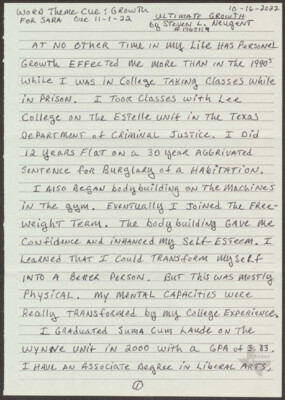 WORD THEME CUE: GROWTH 10-16-2022
FOR SARA Due 11-1-22 ULTIMATE GROWTH
by STEVEN L. NEUGENT
AT NO OTHER TIME IN MY Life HAS PERSONEL
GROWTH EFFECTED ME MORE THAN IN THE 1990s
While I WAS IN COLLEGE TAKING CLASSES While
IN PRISON. I TOOK CLASSES WITH LEE
COLLEGE ON THE ESTELLE UNIT IN THE TEXAS
DEPARTMENT OF CRIMINAL JUSTICE. I DID
12 YEARS FLAT ON A 30 YEAR AGGRIVATED
SENTENCE FOR BURGLARY OF A HABITATION.
I ALSO BEGAN bodybuilding ON THE MACHINES
IN THE gym. EVENTUALLY I JOINED THE FREE-
WEIGHT TEAM. THE bodybuilding GAVE ME
CONFIDENCE AND INHANCED My SELF-ESTEEM. I
LEARNED THAT I COULD TRANSFORM MYSELF
INTO A BETTER PERSON. BUT THIS WAS MOSTLY
PHYSICAL. MY MENTAL CAPACITIES WERE
REALLY TRANSFORMED by my COLLEGE EXPERIENCE.
I GRADUATED SUMA CUM LAUDE ON THE
WYNNE UNIT IN 2000 WITH A GPA OF 3.83.
I HAVE AN ASSOCIATE DEGREE IN LIBERAL ARTS,
1